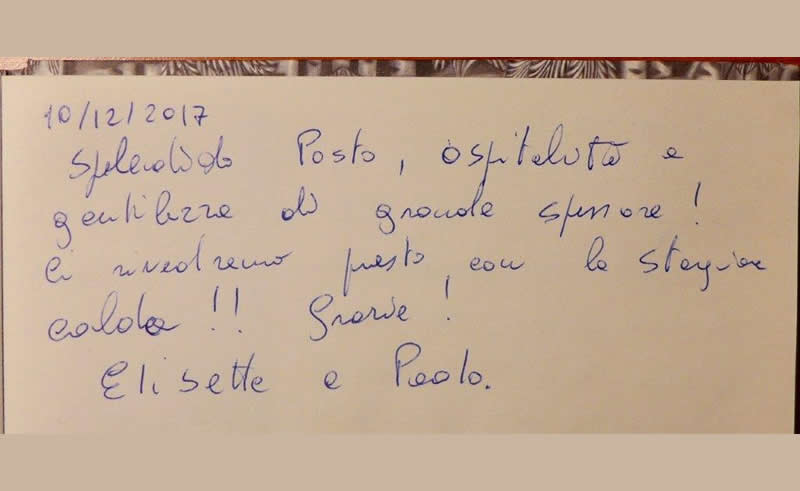 10/12/2017
Splendido Posto, ospitalità e
gentilezza di grande spessore!
Ci rivedremo presto, con la stagione
calda!! Grazie!
Elisette e Paolo.